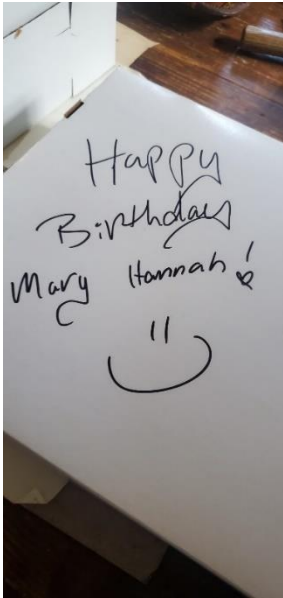 Happy
Birthday
Mary Hannah!